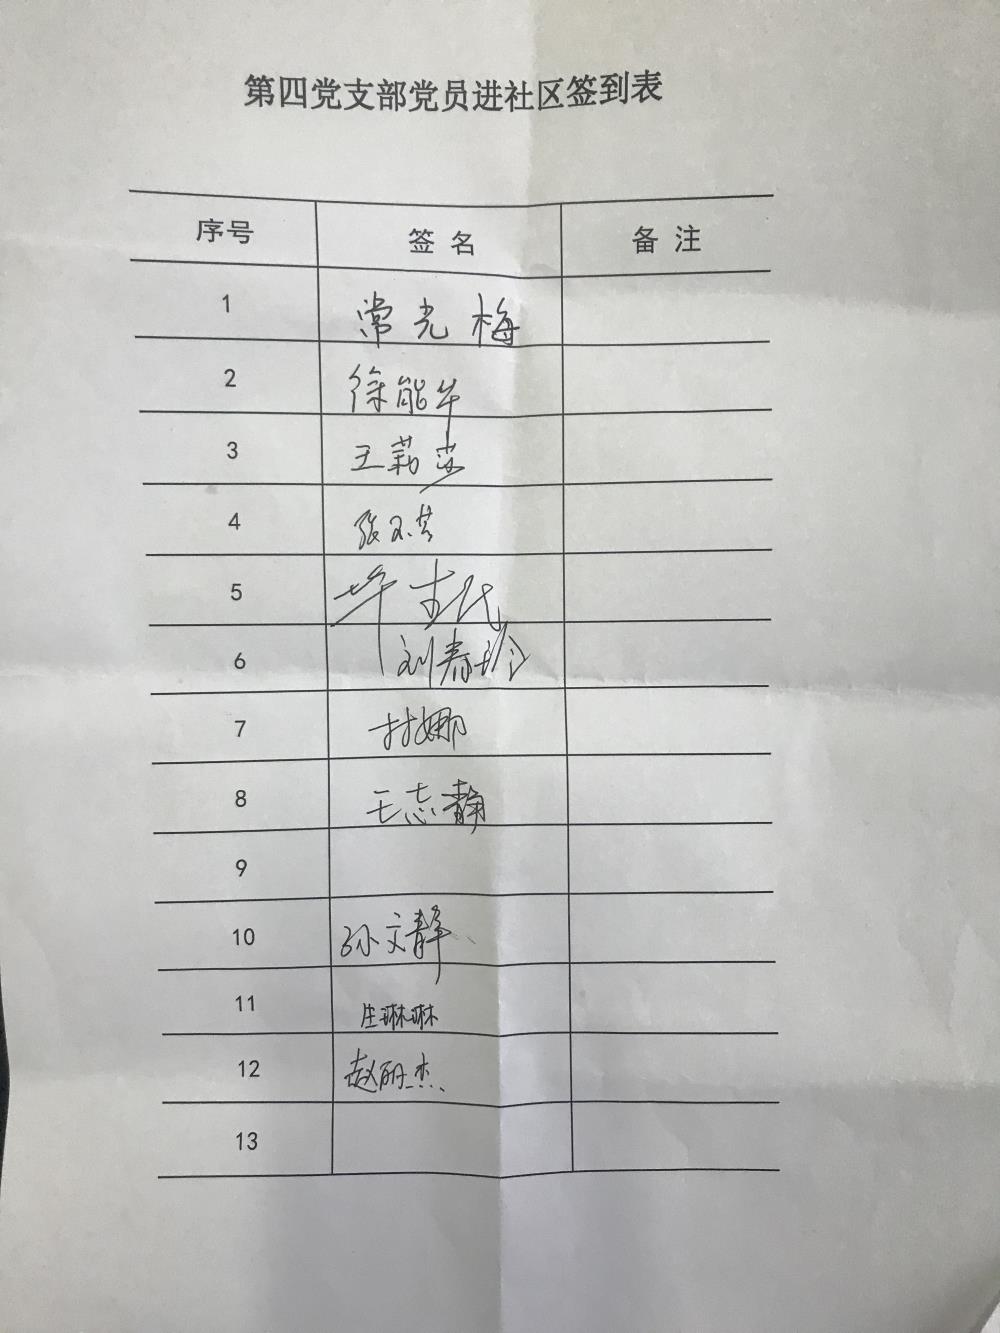 第四党支部党员进社区签到表
序号 签名 备注
1 常光梅
2 徐能华
3 王莉莎
4 张
5
6 刘春玲
7 娜
8 王志静
9
10 孙文静
11 庄琳琳
12 赵丽杰
13